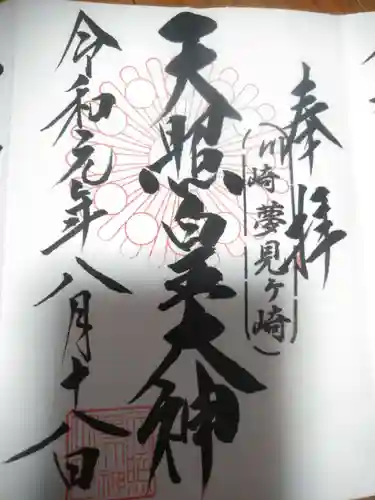 奉拝
(川崎夢見ヶ崎)
天照皇大神
令和元年八月十八日